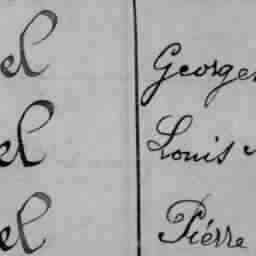 el Georges
el Louis
el Piérre